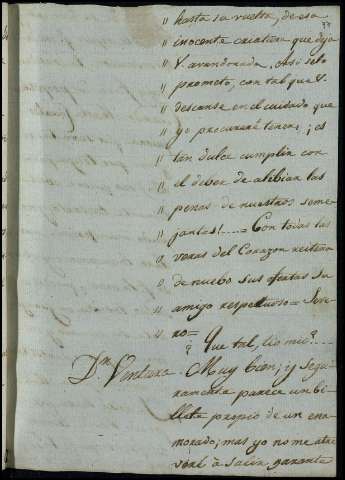 " hasta su vuelta, de esa
" inocente criatura que deja
" V. avandonada. Asi se lo
" prometo, con tal que V.
" descanse en el cuidado que
" yo procuraré tener; es
" tan dulce cumplir con
" el deber de alibiar las
" penas de nuestros seme
" jantes!..... Con todas las
" veras del Corazon reitera
" de nuebo sus ofertas su
" amigo respetuoso = Seve
" ro =
? Que tal, tio mio?....
Dn. Ventura. Muy bien; y segu
ramente parece un bi
llete propio de un ena
morado; mas yo no me atre
veré à salir garante